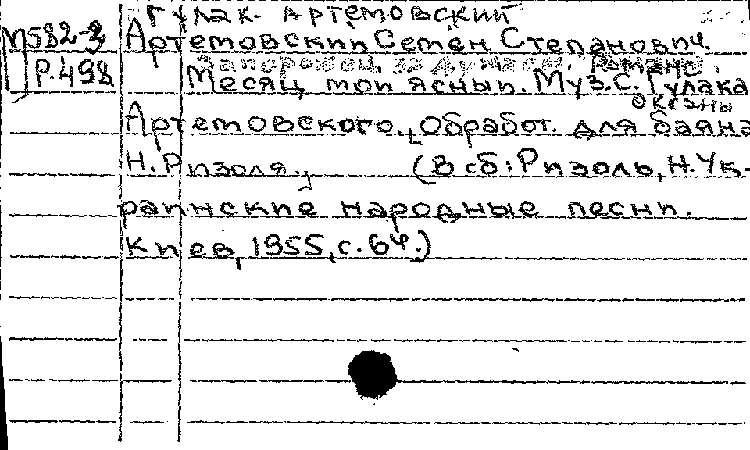 Гулак-Артемовский
М582-3 Артемовский Семен Степанович.
Р.498 Запорожец за Дунаем. Романс.
Месяц мой ясный. Муз. С. Гулака
Оксаны
Артемовского. Обработ. для баяна
Н. Ризоля. (В сб: Ризоль, Н. Ук-
раинские народные песни.
Киев, 1955, с. 64.)